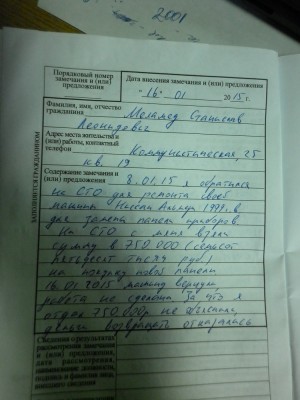 2001
Порядковый номер
замечания и (или)
предложения
Дата внесения замечания и (или) предложения
"16" 01 2015 г.
Фамилия, имя, отчество
гражданина
Станислав
Леонидович
Адрес места жительства и
(или) работы, контактный
телефон
Коммунистическая, 25
кв. 19
Содержание замечания и
(или) предложения
8.01.15 я обратился
на СТО для ремонта своей
машины Ниссан 1997 г.в.
для замены панели приборов.
На СТО с меня взяли
сумму в 750.000 (семьсот
пятьдесят тысяч руб)
на покупку новой панели
16.01.2015 машину вернули
работа не сделана За что я
отдал 750.000р не объяснили,
деньги возвращать отказались.
Сведения о результатах
рассмотрения замечания
и (или) предложения,
дата рассмотрения,
наименование должности,
подпись и фамилия лица,
внесшего сведения
ЗАПОЛНЯЕТСЯ ГРАЖДАНИНОМ